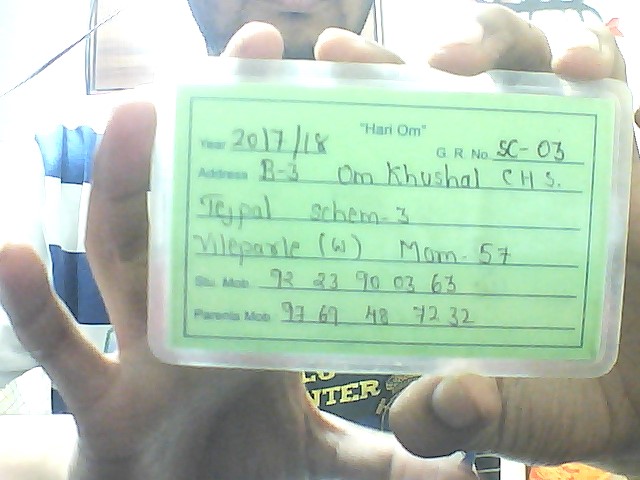 "Hari Om"
Year 2017/18 G. R. No. SC-03
Address B-3 Om Khushal CHS.
Tejpal schem-3
Vileparle (W) Mom-57
Stu. Mob. 92 23 90 03 63
Parents Mob. 97 69 48 72 32
NTER